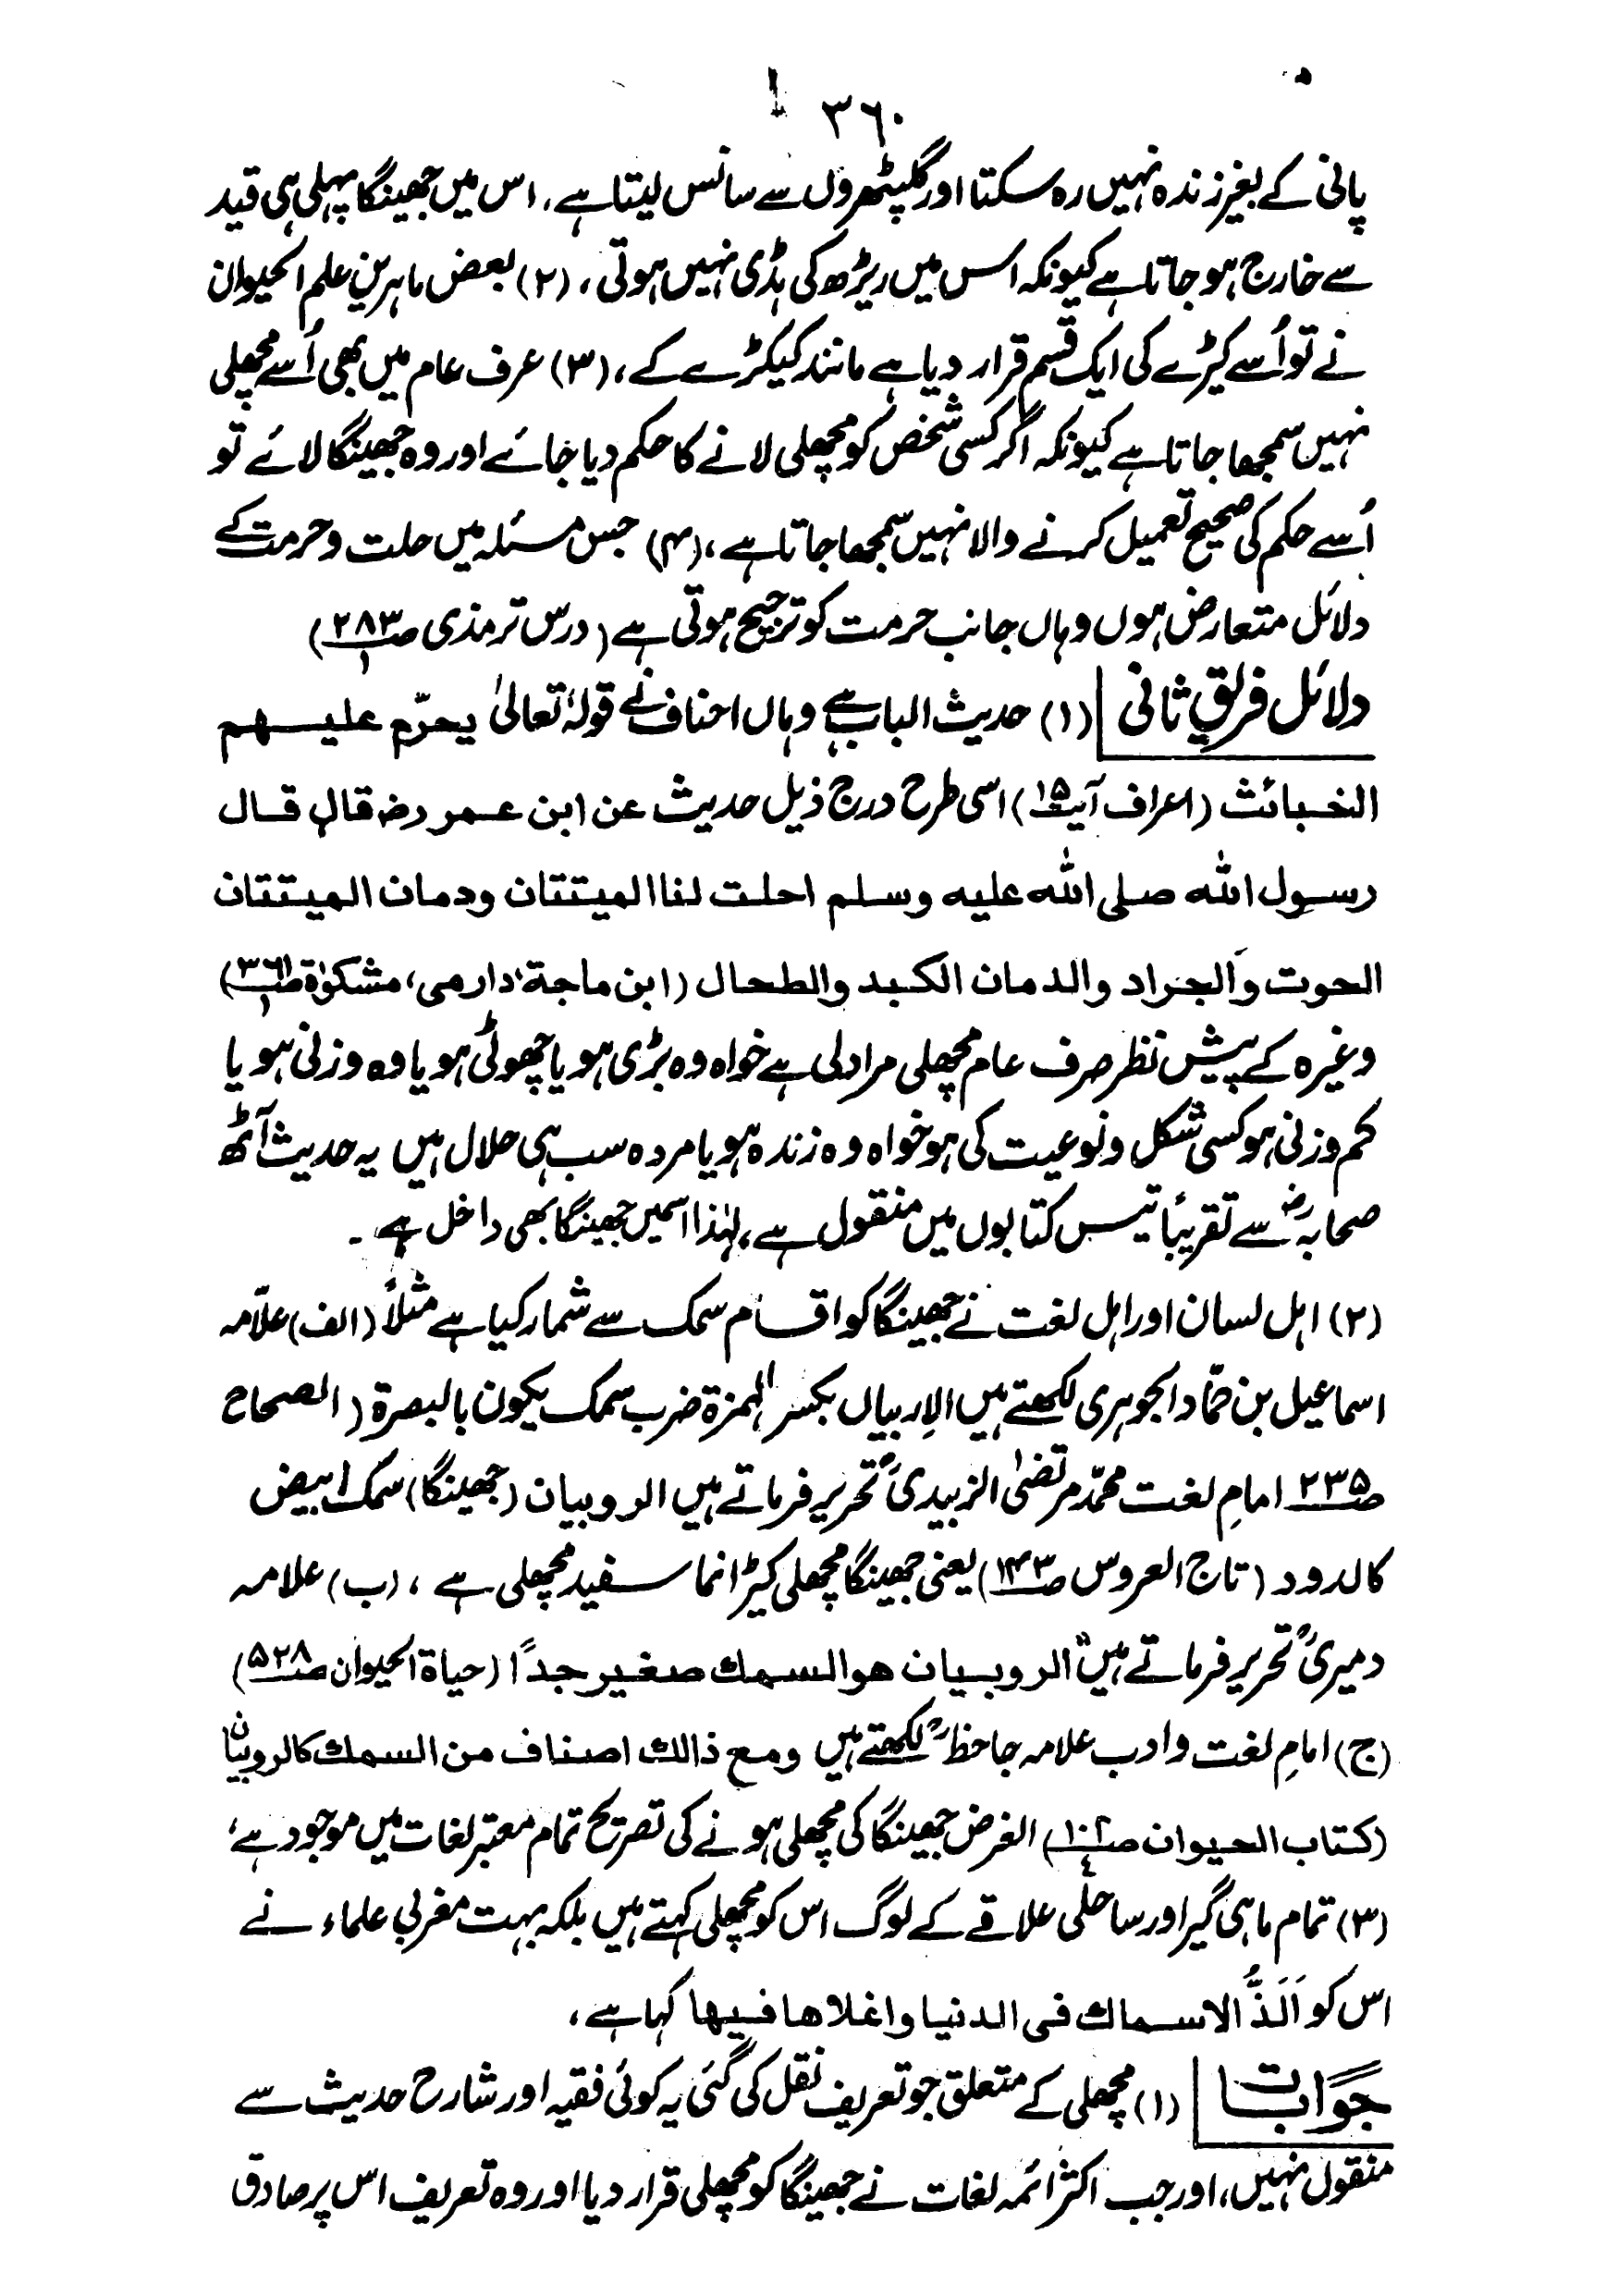 ۳۶۰
پانی کے بغیر زندہ نہیں رہ سکتا اور گلپٹھروں سے سانس لیتا ہے، اس میں جھینگا پہلی ہی قید
سے خارج ہو جاتا ہے کیونکہ اسس میں ریڑھ کی ہڈی نہیں ہوتی، (۲) بعض ماہرین علم الحیوان
نے تو اُسے کیڑے کی ایک قسم قرار دیا ہے مانند کیکڑے کے، (۳) عرف عام میں بھی اُسے مچھلی
نہیں سمجھا جاتا ہے کیونکہ اگر کسی شخص کو مچھلی لانے کا حکم دیا جائے اور وہ جھینگا لائے تو
اُسے حکم کی صحیح تعمیل کرنے والا نہیں سمجھا جاتا ہے، (۴) جس مسئلہ میں حلت و حرمت کے
دلائل متعارض ہوں وہاں جانب حرمت کو ترجیح ہوتی ہے (درس ترمذی ص۲۸۳ ۱)
دلائل فریق ثانی (۱) حدیث الباب ہے وہاں احناف نے قولہٗ تعالیٰ یحرّم علیہم
الخبائث (اعراف آیت ۱۵) اسی طرح درج ذیل حدیث عن ابن عمر رض قال قال
رسول الله صلی الله علیه وسلم احلت لنا المیتتان ودمان المیتتان
الحوت والجراد والدمان الکبد والطحال (ابن ماجة، دارمی، مشکوٰة ص۳۶۱ ۱)
وغیرہ کے پیش نظر صرف عام مچھلی مراد لی ہے خواہ وہ بڑی ہو یا چھوٹی ہو یا وہ وزنی ہو یا
کم وزنی ہو کسی شکل و نوعیت کی ہو خواہ وہ زندہ ہو یا مردہ سب ہی حلال ہیں یہ حدیث آٹھ
صحابہ رض سے تقریباً تیس کتابوں میں منقول ہے، لہٰذا اسمیں جھینگا بھی داخل ہے۔
(۲) اہل لسان اور اہل لغت نے جھینگا کو اقسام سمک سے شمار کیا ہے مثلاً (الف) علّامہ
اسماعیل بن حمّاد الجوہری لکھتے ہیں الاِربیال بکسر الہمزة ضرب سمک یکون بالبصرة (الصحاح
ص۲۳۵ امامِ لغت محمّد مرتضیٰ الزبیدیؒ تحریر فرماتے ہیں الروبیان (جھینگا) سمک ابیض
کالدود (تاج العروس ص۱۴۳) یعنی جھینگا مچھلی کیڑا نما سفید مچھلی ہے، (ب) علامہ
دمیریؒ تحریر فرماتے ہیں "الروبیان هو السمك صغیر جدًا (حیاة الحیوان ص۵۲۸)
(ج) امامِ لغت و ادب علامہ جاحظؒ لکھتے ہیں ومع ذالك اصناف من السمك کالروبیان
(کتاب الحیوان ص۱۰۲ ۴) الغرض جھینگا کی مچھلی ہونے کی تصریح تمام معتبر لغات میں موجود ہے،
(۳) تمام ماہی گیر اور ساحلی علاقے کے لوگ اس کو مچھلی کہتے ہیں بلکہ بہت مغربی علماء نے
اس کو اَلَذُّ الاسماك فی الدنیا واغلاها فیها کہا ہے،
جوابات (۱) مچھلی کے متعلق جو تعریف نقل کی گئی یہ کوئی فقیہ اور شارح حدیث سے
منقول نہیں، اور جب اکثر ائمہ لغات نے جھینگا کو مچھلی قرار دیا اور وہ تعریف اس پر صادق